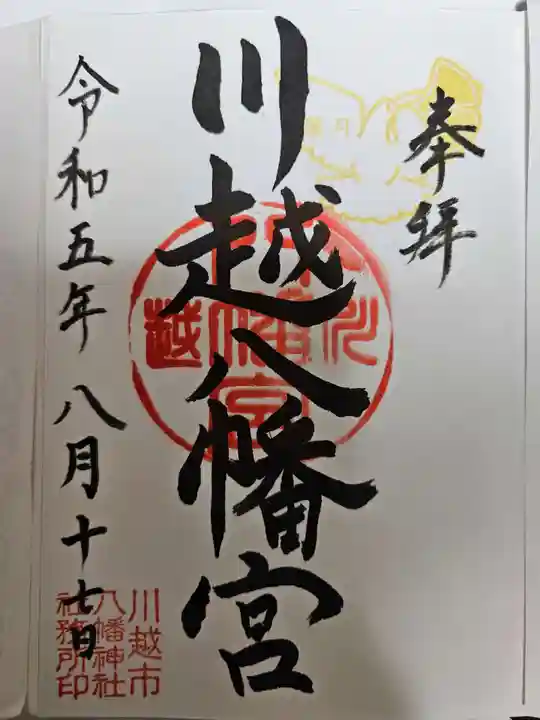 奉拝
川越八幡宮
令和五年八月十七日
川越市
八幡神社
社務所印